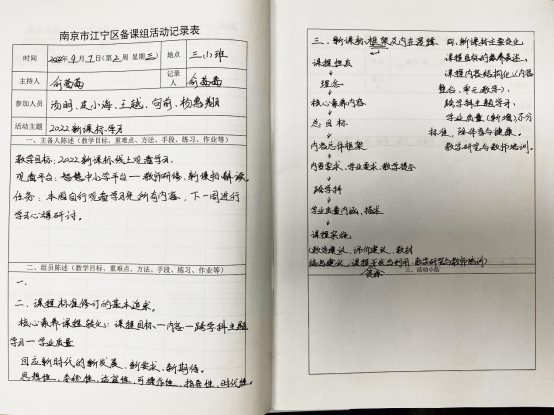 南京市江宁区备课组活动记录表
时间 2022年9月7日(第2周 星期三) 地点 三(1)班
主持人 俞茜茜 记录人 俞茜茜
参加人员 汤明、皮小海、王
活动主题 2022新课标学习
一、主备人陈述(教学目标、重难点、方法、手段、练习、作业等)
教学目标:2022新课标线上观看学习.
观看平台:智慧中小学平台—教师研修、新课标解读
任务:本周自行观看学习完所有内容,下一周进行
学习心得研讨.
二、组员陈述(教学目标、重难点、方法、手段、练习、作业等)
一、
二、课程标准修订的基本追求.
核心素养课程转化:课程目标—内容—跨学科主题
学习—学业质量
回应新时代的新发展、新要求、新期待.
思想性、适宜性、可操作性、指导性、时代性.
三、新课标框架及内在逻辑
课程性质
↓
理念
↓
核心素养内容
↓
总目标
↓
内容总体框架
↓
内容要求、学业要求、教学提示
↓
跨学科
↓
学业质量内涵、描述
↓
课程实施
(教学建议、评价建议、教材
编写建议、课程开发与利用、教学研究与教师培训)
四、新课标主要变化
课程目标的素养表述、
课程内容结构化(内容
整合、单元教学)、
跨学科主题学习、
学业质量(新增)
标准,
教学研究与教师培训.
三、活动小结